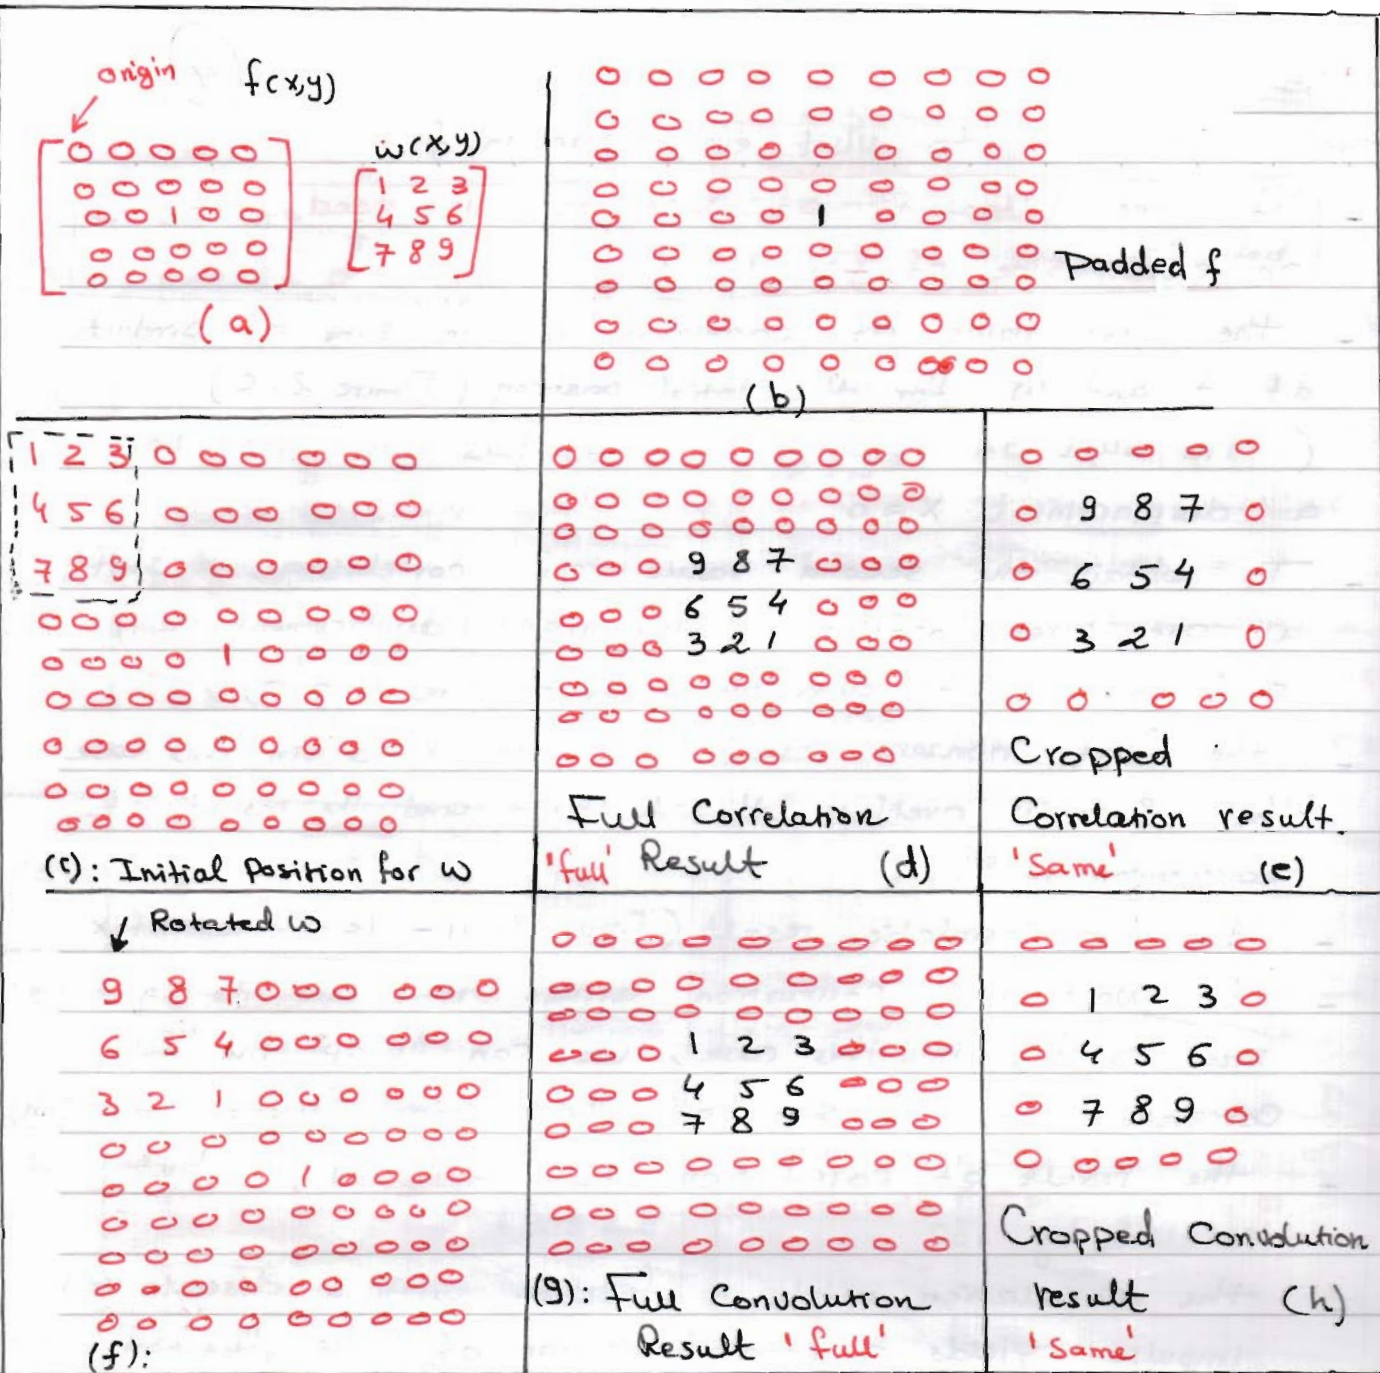 origin f(x,y)
w(x,y)
0 0 0 0 0
0 0 0 0 0
0 0 1 0 0
0 0 0 0 0
0 0 0 0 0
1 2 3
4 5 6
7 8 9
(a)
0 0 0 0 0 0 0 0 0
0 0 0 0 0 0 0 0 0
0 0 0 0 0 0 0 0 0
0 0 0 0 0 0 0 0 0
0 0 0 0 1 0 0 0 0
0 0 0 0 0 0 0 0 0
0 0 0 0 0 0 0 0 0
0 0 0 0 0 0 0 0 0
0 0 0 0 0 0 0 0 0
Padded f
(b)
1 2 3 0 0 0 0 0 0
4 5 6 0 0 0 0 0 0
7 8 9 0 0 0 0 0 0
0 0 0 0 0 0 0 0 0
0 0 0 0 1 0 0 0 0
0 0 0 0 0 0 0 0 0
0 0 0 0 0 0 0 0 0
0 0 0 0 0 0 0 0 0
0 0 0 0 0 0 0 0 0
(c): Initial Position for w
0 0 0 0 0 0 0 0 0
0 0 0 0 0 0 0 0 0
0 0 0 0 0 0 0 0 0
0 0 0 9 8 7 0 0 0
0 0 0 6 5 4 0 0 0
0 0 0 3 2 1 0 0 0
0 0 0 0 0 0 0 0 0
0 0 0 0 0 0 0 0 0
0 0 0 0 0 0 0 0 0
Full Correlation
'full' Result (d)
0 0 0 0 0
0 9 8 7 0
0 6 5 4 0
0 3 2 1 0
0 0 0 0 0
Cropped
Correlation result.
'Same' (e)
Rotated w
9 8 7 0 0 0 0 0 0
6 5 4 0 0 0 0 0 0
3 2 1 0 0 0 0 0 0
0 0 0 0 0 0 0 0 0
0 0 0 0 1 0 0 0 0
0 0 0 0 0 0 0 0 0
0 0 0 0 0 0 0 0 0
0 0 0 0 0 0 0 0 0
0 0 0 0 0 0 0 0 0
(f):
0 0 0 0 0 0 0 0 0
0 0 0 0 0 0 0 0 0
0 0 0 0 0 0 0 0 0
0 0 0 1 2 3 0 0 0
0 0 0 4 5 6 0 0 0
0 0 0 7 8 9 0 0 0
0 0 0 0 0 0 0 0 0
0 0 0 0 0 0 0 0 0
0 0 0 0 0 0 0 0 0
(g): Full Convolution
Result 'full'
0 0 0 0 0
0 1 2 3 0
0 4 5 6 0
0 7 8 9 0
0 0 0 0 0
Cropped Convolution
result (h)
'Same'